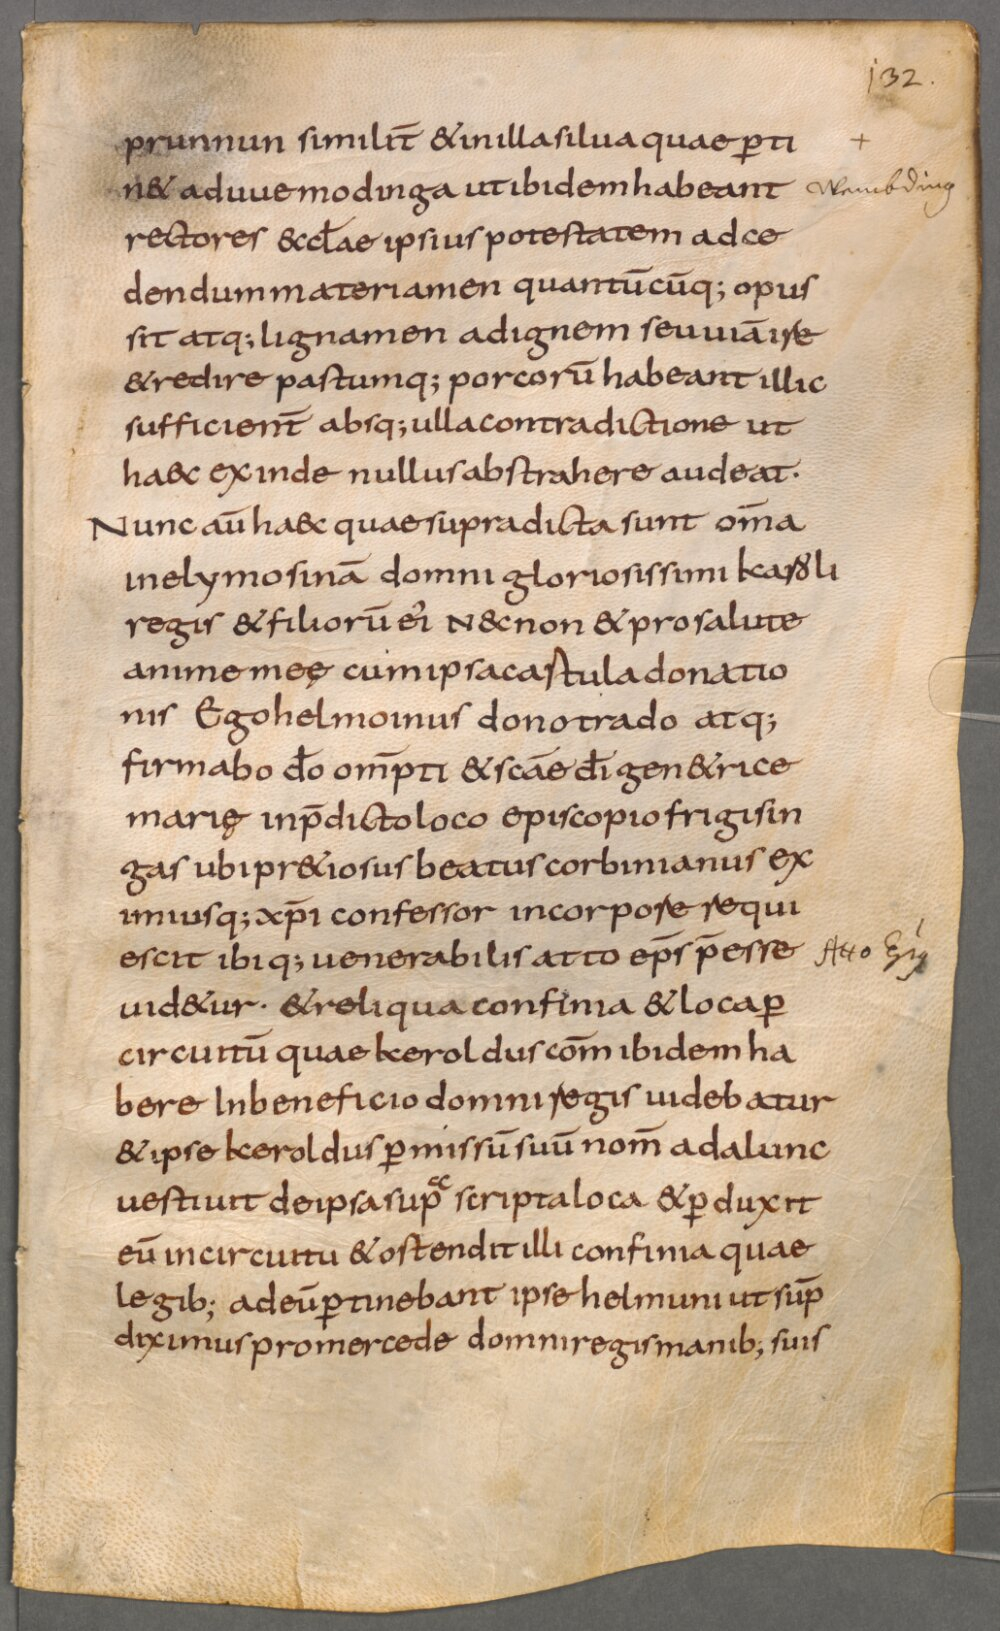 132.
prunnun similit̄ & in illa silua quae ꝑti +
n& ad uuemodinga ut ibidem habeant Wembding
rectores &cl̄ae ipsius potestatem ad ce
dendum materiamen quantūcūq; opus
sit atq; lignamen ad ignem seu uiā ire
& redire pastumq; porcorū habeant illic
sufficient̄ absq; ulla contradictione ut
haec exinde nullus abstrahere audeat.
Nunc aū haec quae supradicta sunt om̄a
in elymosinā domni gloriosissimi karoli
regis & filiorū ei' Necnon & pro salute
anime meę cum ipsa castula donatio
nis Ego helmoinus dono trado atq;
firmabo dō om̄pti & scāe dī gen&rice
marię in p̄dicto loco episcopio frigisin
gas ubi pr&iosus beatus corbinianus ex
imiusq; xp̄i confessor in corpore requi
escit ibiq; uenerabilis atto ep̄s p̄esse Atto
uid&ur. & reliqua confinia & loca ꝑ
circuitū quae keroldus com̄ ibidem ha
bere In beneficio domni regis uidebatur
& ipse keroldus ꝑ missū suū nom̄ adalunc
uestiuit de ipsa sup̱ scripta loca & ꝑduxit
eū in circuitu & ostendit illi confinia quae
legib; ad eū ꝑtinebant ipse helmuni ut sup̄
diximus pro mercede domni regis manib; suis